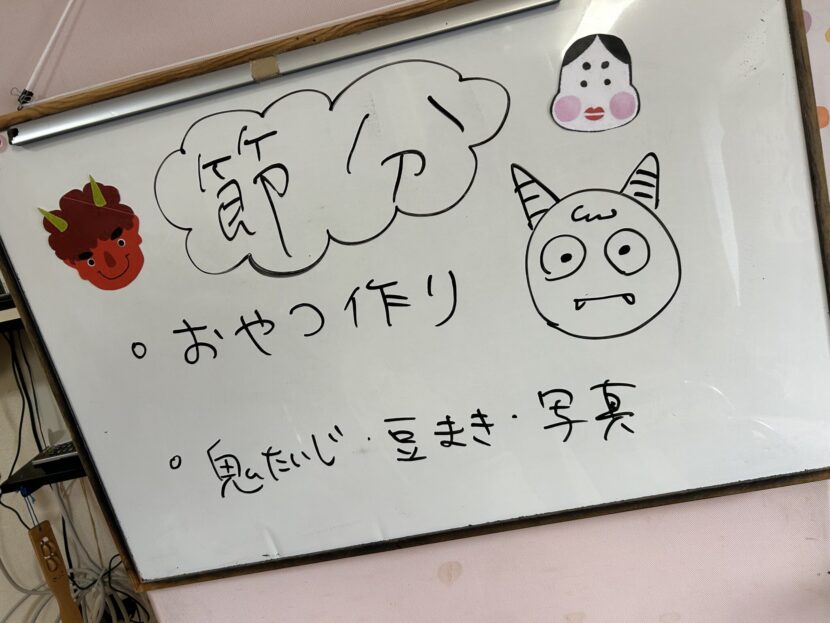 節分
○ おやつ作り
○ 鬼たいじ・豆まき・写真